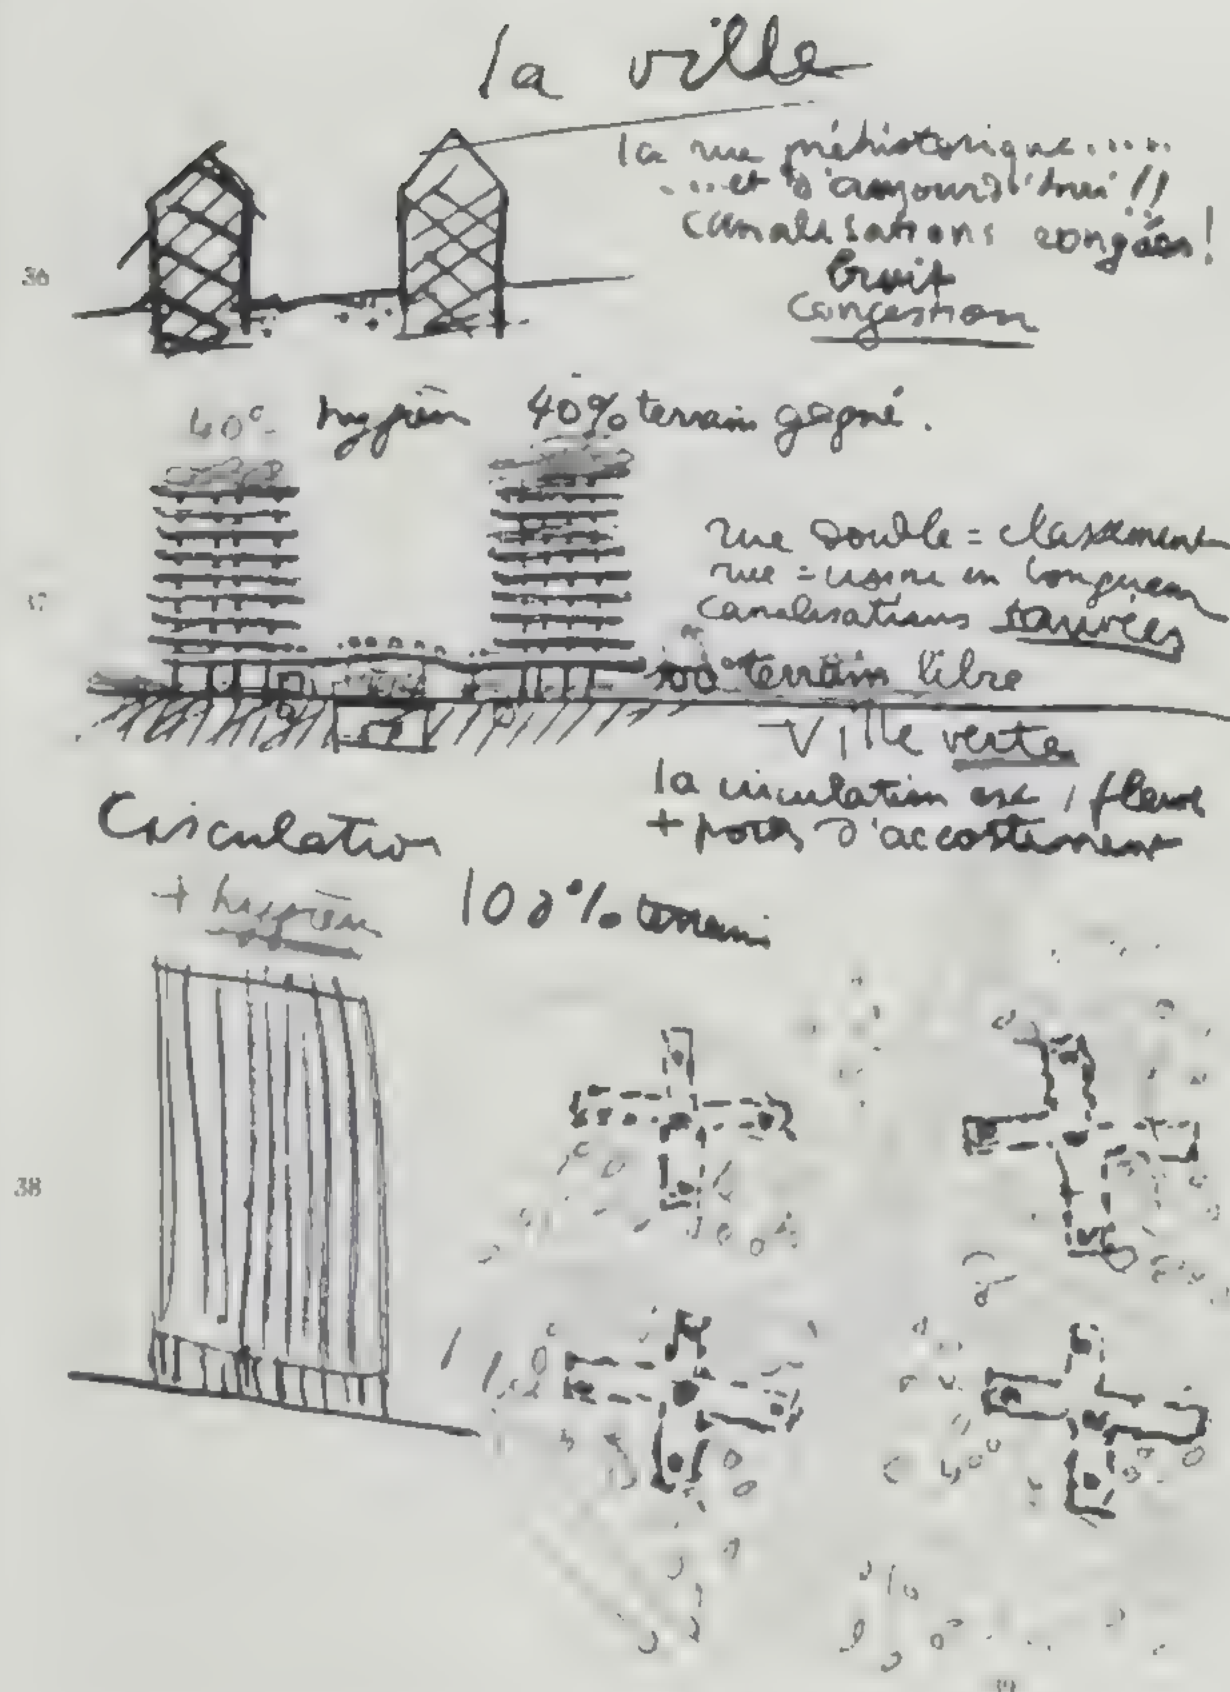 la ville
la rue préhistorique.....
...et d'aujourd'hui !!
canalisations rongées !
bruit
Congestion
36
40% terrain gagné.
37
rue Double = classement
rue = usine en longueur
canalisations sauvées
100% terrain libre
Ville verte
la circulation est 1 fleuve
+ ports d'accostement
Circulation
+
100% terrain
38